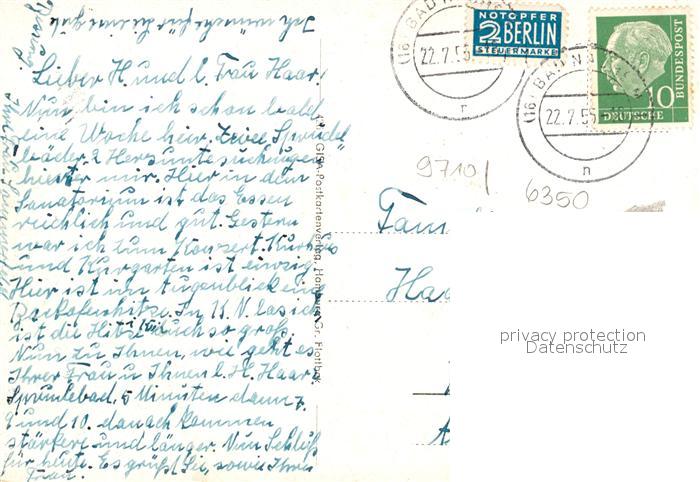 Ich wünsche für Sie eine gute
Lieber H. und l. Frau Haar!
Nun bin ich schon bald
eine Woche hier. Zwei Sprudel
bäder 2 Herzuntersuchungen
hinter mir. Hier in dem
Sanatorium ist das Essen
reichlich und gut. Gestern
war ich zum Konzert. Kurhaus
und Kurgarten ist einzig
Hier ist im Augenblick eine
Backofenhitze. In K. N. las ich
ist die Hitze auch so groß.
Nun zu Ihnen, wie geht es
Ihrer Frau u Ihnen l. H. Haar.
Sprudelbad, 5 Minuten dann 7.
9 und 10. danach kommen
stärkere und länger. Nun Schluß
für heute. Es grüßt Sie, sowie Ihre
Frau.
GISA-Postkartenverlag, Hamburg-Gr. Flottbek
NOTOPFER
2 BERLIN
STEUERMARKE
(16) BAD NAUHEIM
22.7.55
n
DEUTSCHE
BUNDESPOST
10
(16) BAD NAUHEIM
22.7.55
n
9710/
6350
Fam
Haa
privacy protection
Datenschutz